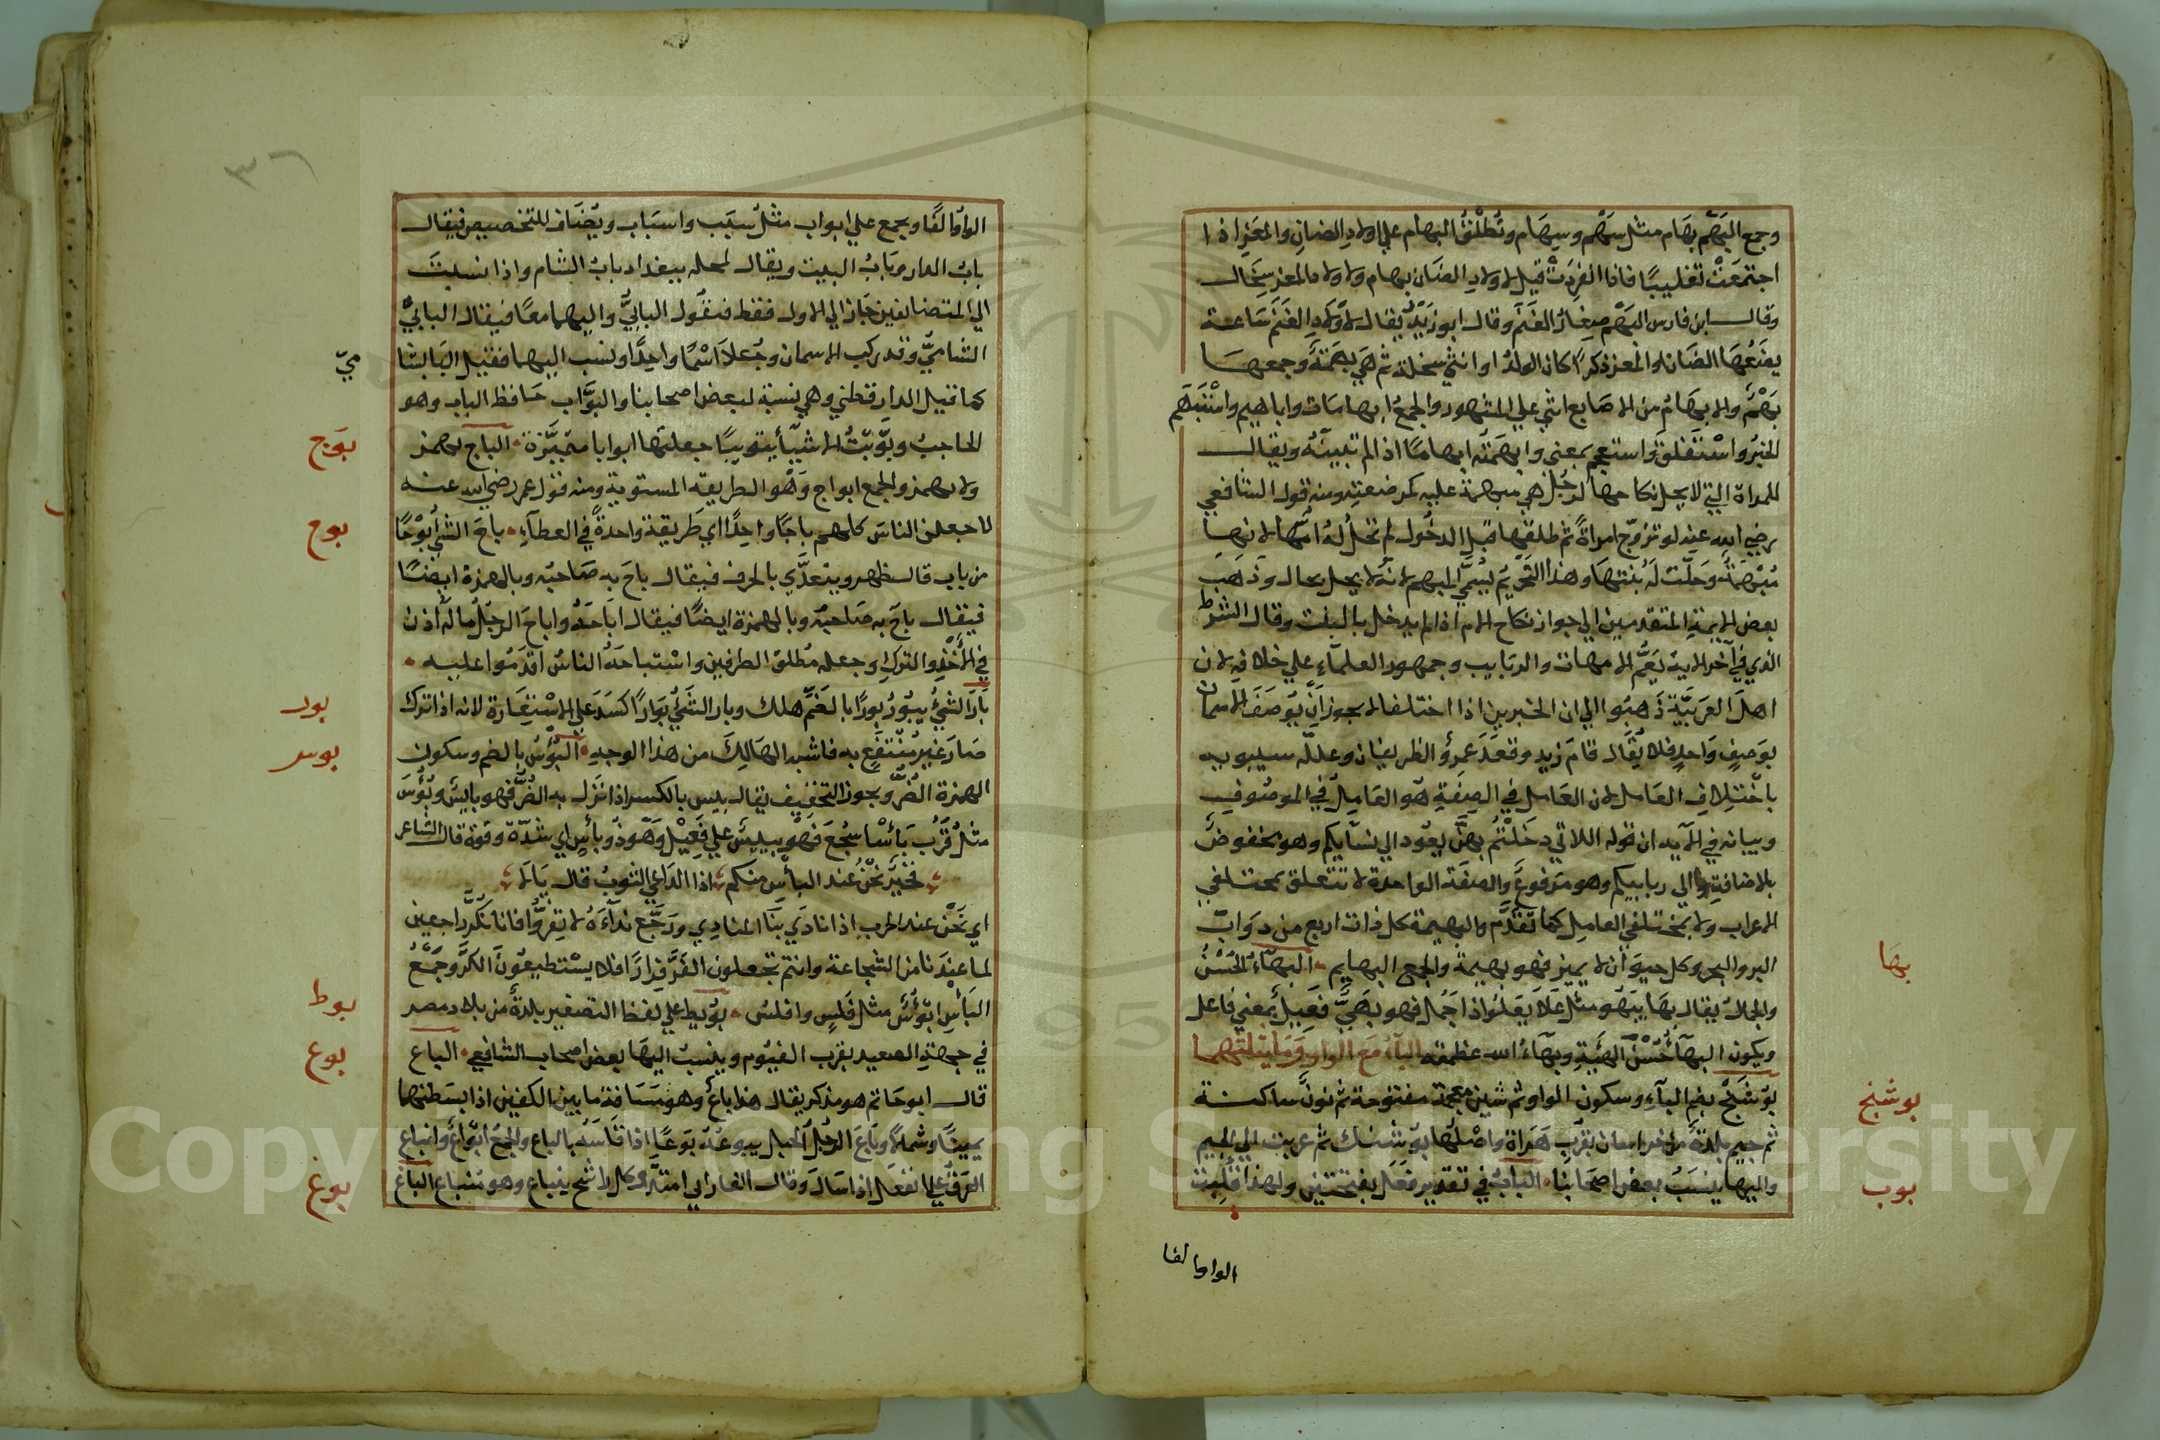 وجمع البَهْم بهَام مثل سَهْم وسِهَام وتُطْلقُ البهام علي اولادِ الضانِ والمَعَزِ اذا
اجتمعَتْ تغليبًا فاذا انفردَتْ قيل لاولادِ الضَان بهام ولاولاد المعز سِخَال
وقال ابن فارس البَهْم صِغارُ الغَنَم وقال ابو زَيْدٍ يقال لاوْلَادِ الغَنَم سَاعة
يضَعُهَا الضَان والمعز ذكرًا كان الولدُ او انثي سخلة ثم هي بهَمَةٌ وجمعهَا
بَهْمٌ والابهَامُ من الاصَابع انثي علي المشهور والجمعُ ابهامَات واباهيم واسْتَبهَم
الخبرُ واسْتَغلقَ واستعجم بمعني وابهَمَتُه ابهَامًا اذا لم تبينَهُ ويقال
للمراة التي لايحل نكاحها لرجُل هي مبهمة عليه كمرضعتِه ومنه قول الشافعي
رضي الله عنه لو تزوّج امراةً ثم طلقها قبل الدخُول لم تحلُ لهُ امُّها لانها
مُبْهَمَةٌ وَحَلَّت لهُ بنتهَا وهذا التَحْرِيمُ يُسَمَّي المبهم لانّهُ لا يحل بحال وذهَب
بعض الايمة المتقدمين الي جواز نكاح الام اذا لم يدخل بالبنت وقال الشرط
الذي في آخر الاية يَعُمُّ الامهات والربَايب وجمهور العلمآءِ علي خلافِه لان
اهل العَرَبيَّة ذَهَبُوا الي ان الخبرين اذا اختلفا لا يجوز اَنْ يُوصَفَ الاسمان
بوَصفٍ وَاحدٍ فلا يُقال قامَ زيد وقعَدَ عَمرٌو الظريفان وعللَه سيبويه
باخْتِلَافِ العَامل لان العَامل في الصِفَةِ هو العَامِلُ في الموصُوفِ
وبيانه في الآية ان قوله اللاتي دخَلْتُم بهنَّ يعُود الي نسَآيكم وهو مخفوضٌ
بالاضافةِ والي ربايبكم وهو مَرفوعٌ والصفَة الواحدة لا تتعلق بمختلفي
الاعراب ولا بمختلفي العامِل كما تَقدَّم والبهيمة كل ذات اربع من دوَابّ
البر والبحر وكل حيوَان لا يميز فهو بهيمة والجمع البهايم • البهَآءُ الحُسْنُ
والجمالُ يقال بهَا يبهُو مثل عَلَا يعلُوا اذا جَمُل فهو بَهِيٌّ فَعِيلٌ بمعني فَاعل
ويكون البهآءُ حُسْنَ الهيَّةِ وبهآءُ الله عظمته البآءُ مَعَ الواو وَمَا يثلثهما
بوُشَنجْ بضم البآءِ وسكون الواو ثم شين معجمة مفتوحة ثم نون ساكنة
ثم جيم بلدةٌ من خراسان بقرُبِ هَرَاة واصْلُها بوشنك ثم عربت الي الجيم
واليها ينسَبُ بعض اصحَابنا • البَابُ في تقدير فَعَل بفتحتين ولهذا قُلبت
الواو الفا
بها
بوشنج
بوب
٣٦
الواوُ الفًا ويجمع علي ابواب مثلُ سبَب واسبَاب ويُضَاف للتخصيص فيقال
بابُ الدار وبَابُ البيت ويقال لمحله ببغداد بابُ الشام واذا نسبتَ
الي المتضايفين جَاز الي الاول فقط فتقُول البابيُّ واليهما معًا فيقال البابيُّ
الشاميُّ وقد ركب الاسمان وجُعلا اسْمًا واحِدًا ونسب اليهما فقيل البَابشا
ميّ
كما قيل الدارقطني وهي نسبة لبعض اصحابنا والبَوَّاب حَافظ الباب وهو
الحاجبُ وبَوّبتُ الاشيآء تبويبًا جعلتها ابوابا متميّزة • الباج يهمز
ولا يهمز والجمع ابواج وَهُو الطريقة المستوية ومنه قول عمر رضي الله عنه
لا جعلن الناسَ كلهم باجًا واحِدًا اي طَريقة واحدةً في العطآءِ • باحَ الشيُ بَوْحًا
من باب قال ظهر ويتعدَّي بالحرف فيقال باحَ به صَاحبُه وبالهمزة ايضًا
فيقال باحَ به صَاحبُه وبالهمزة ايضًا فيقال ابَاحَهُ واباحَ الرجُل مالَهُ اذن
في الاخْذِ والترك وجعله مُطلق الطرفين واسْتباحَهُ الناسُ اقدمُوا عليه •
بَارَ الشيُ يبُورُ بُورًا بالضَمِّ هلك وبار الشيُ بَوَارًا كَسَدَ علي الاسْتعَارة لانه اذا ترك
صَارَ غيرَ مُنْتَفَعٍ به فاشبه الهَالِكَ من هذا الوجهِ • البُؤْسُ بالضم وسكون
الهمزة الضُرُّ ويجوز التخفيف يقال بيس بالكسر اذا نزل به الضُرُّ فهو بايسٌ وبُؤْسَ
مثلُ قَرُبَ بَأسًا شجُعَ فهو بَئِيسٌ علي فعِيْل وَهو ذو بأسٍ اي شدّة وقوة قال الشاعر
فخيرٌ نحْنُ عند البأس منكم ؛ اذا الدَاعي المثوبُ قال يَالَا
اي نَحْنُ عند الحرب اذا نادَي بنَا المنادِي ورَجّع نداءَهُ لا تفرُّوا فانا نَكُرُّ راجعين
لما عندَنا من الشجاعة وانتم تجعلون الفَرَّ فِرارًا فلا يسْتطيعُونَ الكرَّ وجَمْعُ
البَأسِ ابؤُسٌ مثلُ فَلْسٍ وافلسُ • بوُيط علي لفظ التصغير بلدةٌ من بلاد مصر
في جهةِ الصعيد بقرب الفيُوم وينسبُ اليهَا بعض اصحاب الشافعي • الباع
قال ابو حَاتم هو مذكر يقال هذا باعٌ وهو مَسَافة ما بين الكفين اذا بسَطتهما
يمينًا وشمالًا وبَاعَ الرجُل الحبل يبوعُهُ بَوعًا اذا قاسَهُ بالباع والجمعُ ابْوَاعٌ وانباع
العَرَقُ علي انفعَل اذا سَالَ وقال الفارابي امتدَّ وكل راشح ينباع وهو مُنباع الباغ
بوج
بوح
بور
بوس
بوط
بوع
بوغ
Copyright © King Saud University